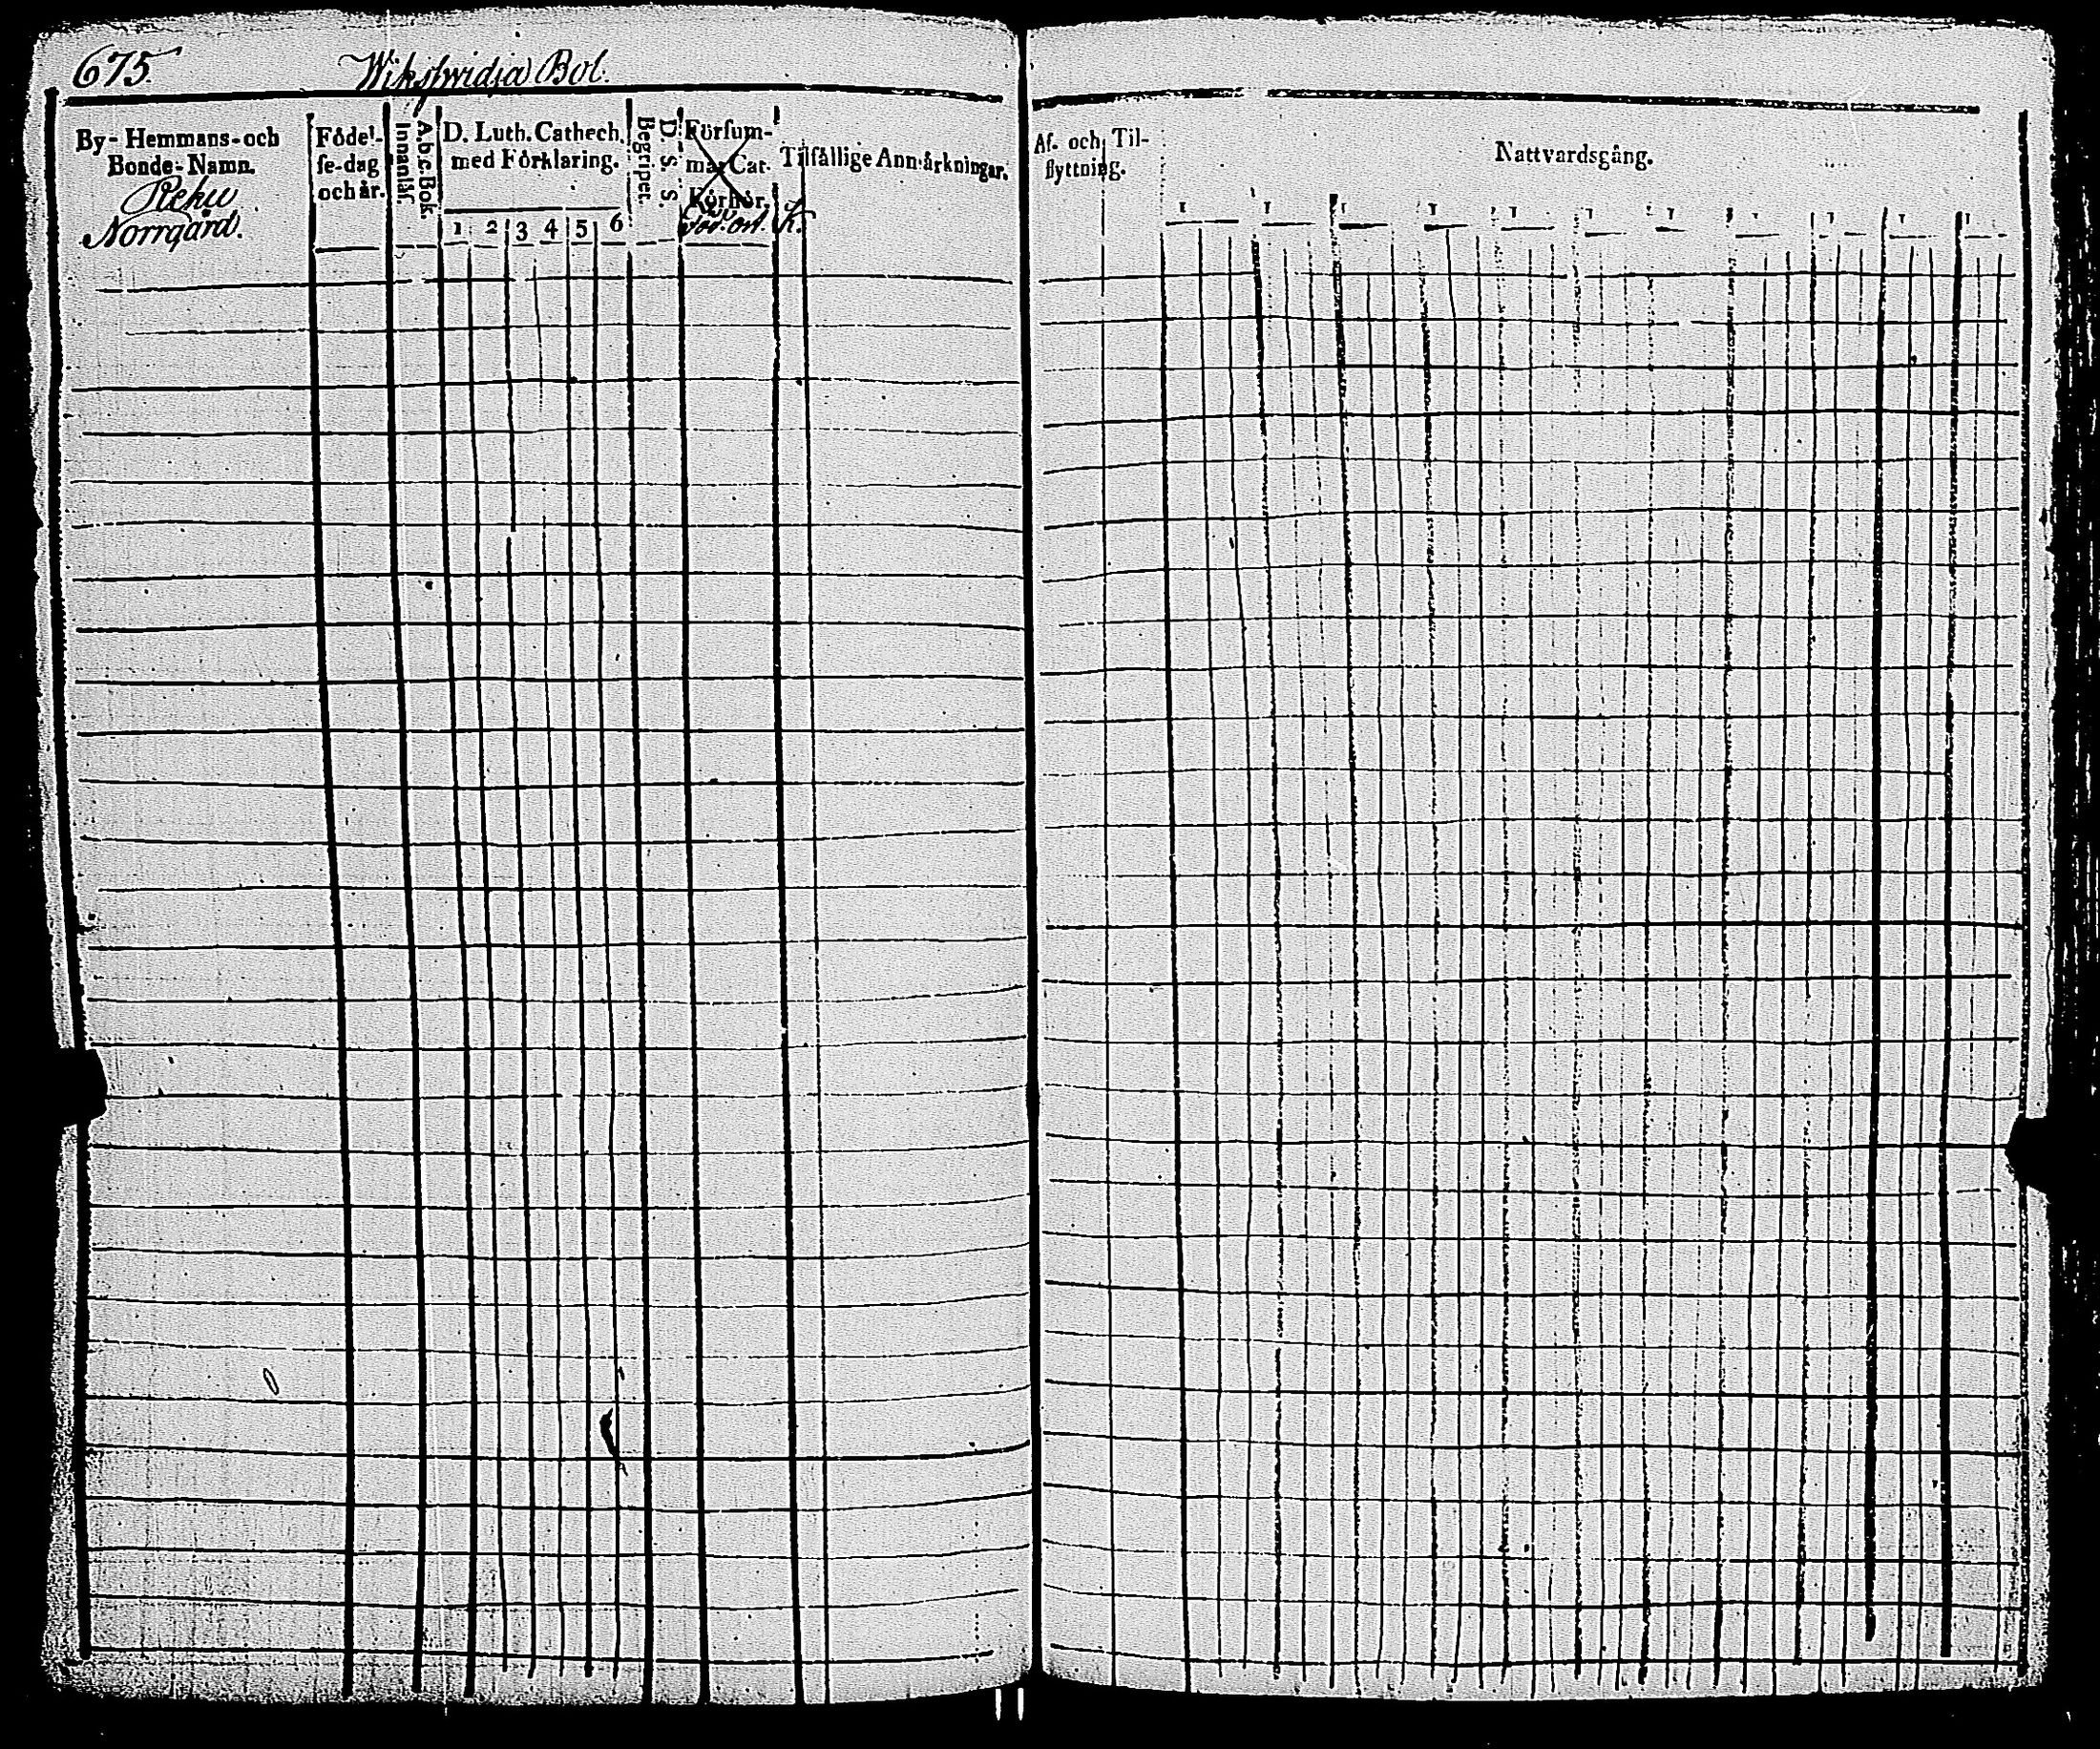 675.
Bol.
By- Hemmans- och
Bonde- Namn.
Norrgård.
Födel-
se-dag
och år.
A.b.c. Bok.
Innanlär.
D. Luth. Cathech.
med Förklaring.
1 2 3 4 5 6
D. S. S.
Begriper.
Försum-
mar Cat.
Förhör.
K.
Tilfällige Anmärkningar.
Af- och Til-
flyttning.
Nattvardsgång.